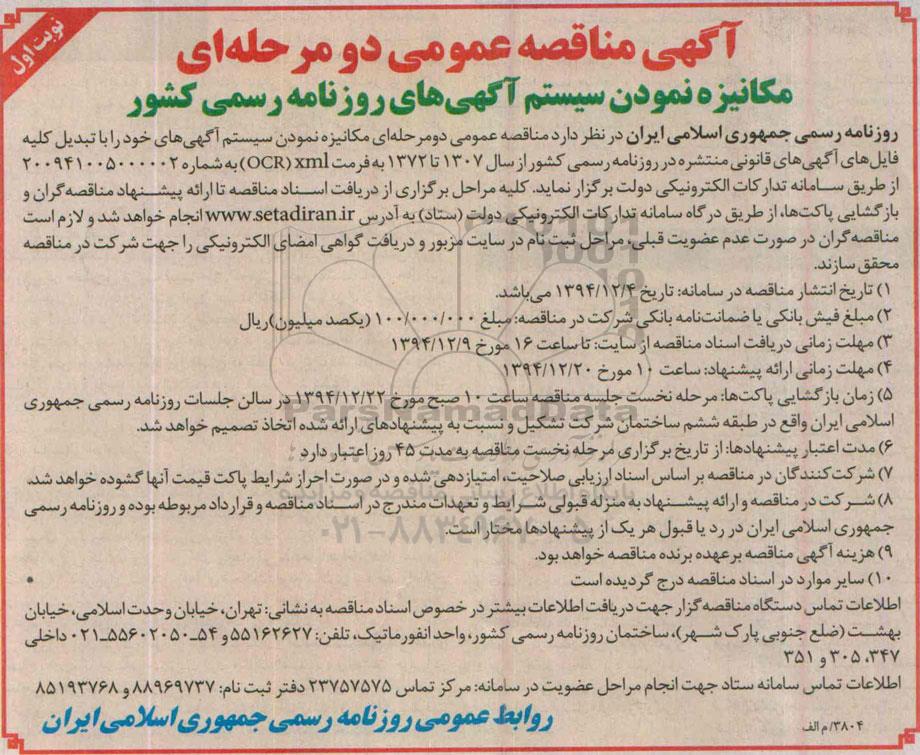 نوبت اول
آگهی مناقصه عمومی دو مرحله‌ای
مکانیزه نمودن سیستم آگهی‌های روزنامه رسمی کشور
روزنامه رسمی جمهوری اسلامی ایران در نظر دارد مناقصه عمومی دومرحله‌ای مکانیزه نمودن سیستم آگهی‌های خود را با تبدیل کلیه
فایل‌های آگهی‌های قانونی منتشره در روزنامه رسمی کشور از سال ۱۳۰۷ تا ۱۳۷۲ به فرمت xml (OCR) به شماره ۲۰۰۹۴۱۰۰۵۰۰۰۰۰۲
از طریق سامانه تدارکات الکترونیکی دولت برگزار نماید. کلیه مراحل برگزاری از دریافت اسناد مناقصه تا ارائه پیشنهاد مناقصه‌گران و
بازگشایی پاکت‌ها، از طریق درگاه سامانه تدارکات الکترونیکی دولت (ستاد) به آدرس www.setadiran.ir انجام خواهد شد و لازم است
مناقصه‌گران در صورت عدم عضویت قبلی، مراحل ثبت نام در سایت مزبور و دریافت گواهی امضای الکترونیکی را جهت شرکت در مناقصه
محقق سازند.
۱) تاریخ انتشار مناقصه در سامانه: تاریخ ۱۳۹۴/۱۲/۴ می‌باشد.
۲) مبلغ فیش بانکی یا ضمانت‌نامه بانکی شرکت در مناقصه: مبلغ ۱۰۰/۰۰۰/۰۰۰ (یکصد میلیون) ریال
۳) مهلت زمانی دریافت اسناد مناقصه از سایت: تا ساعت ۱۶ مورخ ۱۳۹۴/۱۲/۹
۴) مهلت زمانی ارائه پیشنهاد: ساعت ۱۰ مورخ ۱۳۹۴/۱۲/۲۰
۵) زمان بازگشایی پاکت‌ها: مرحله نخست جلسه مناقصه ساعت ۱۰ صبح مورخ ۱۳۹۴/۱۲/۲۲ در سالن جلسات روزنامه رسمی جمهوری
اسلامی ایران واقع در طبقه ششم ساختمان شرکت تشکیل و نسبت به پیشنهادهای ارائه شده اتخاذ تصمیم خواهد شد.
۶) مدت اعتبار پیشنهادها: از تاریخ برگزاری مرحله نخست مناقصه به مدت ۴۵ روز اعتبار دارد
۷) شرکت‌کنندگان در مناقصه بر اساس اسناد ارزیابی صلاحیت، امتیازدهی شده و در صورت احراز شرایط پاکت قیمت آنها گشوده خواهد شد.
۸) شرکت در مناقصه و ارائه پیشنهاد به منزله قبولی شرایط و تعهدات مندرج در اسناد مناقصه و قرارداد مربوطه بوده و روزنامه رسمی
جمهوری اسلامی ایران در رد یا قبول هر یک از پیشنهادها مختار است.
۹) هزینه آگهی مناقصه بر عهده برنده مناقصه خواهد بود.
۱۰) سایر موارد در اسناد مناقصه درج گردیده است
اطلاعات تماس دستگاه مناقصه‌گزار جهت دریافت اطلاعات بیشتر در خصوص اسناد مناقصه به نشانی: تهران، خیابان وحدت اسلامی، خیابان
بهشت (ضلع جنوبی پارک شهر)، ساختمان روزنامه رسمی کشور، واحد انفورماتیک، تلفن: ۵۵۱۶۲۶۲۷ و ۵۴ـ۵۵۶۰۲۰۵۰ـ۰۲۱ داخلی
۳۴۷، ۳۰۵ و ۳۵۱
اطلاعات تماس سامانه ستاد جهت انجام مراحل عضویت در سامانه: مرکز تماس ۲۳۷۵۷۵۷۵ دفتر ثبت نام: ۸۸۹۶۹۷۳۷ و ۸۵۱۹۳۷۶۸
روابط عمومی روزنامه رسمی جمهوری اسلامی ایران
۳۸۰۴/م الف
ParsNamadData